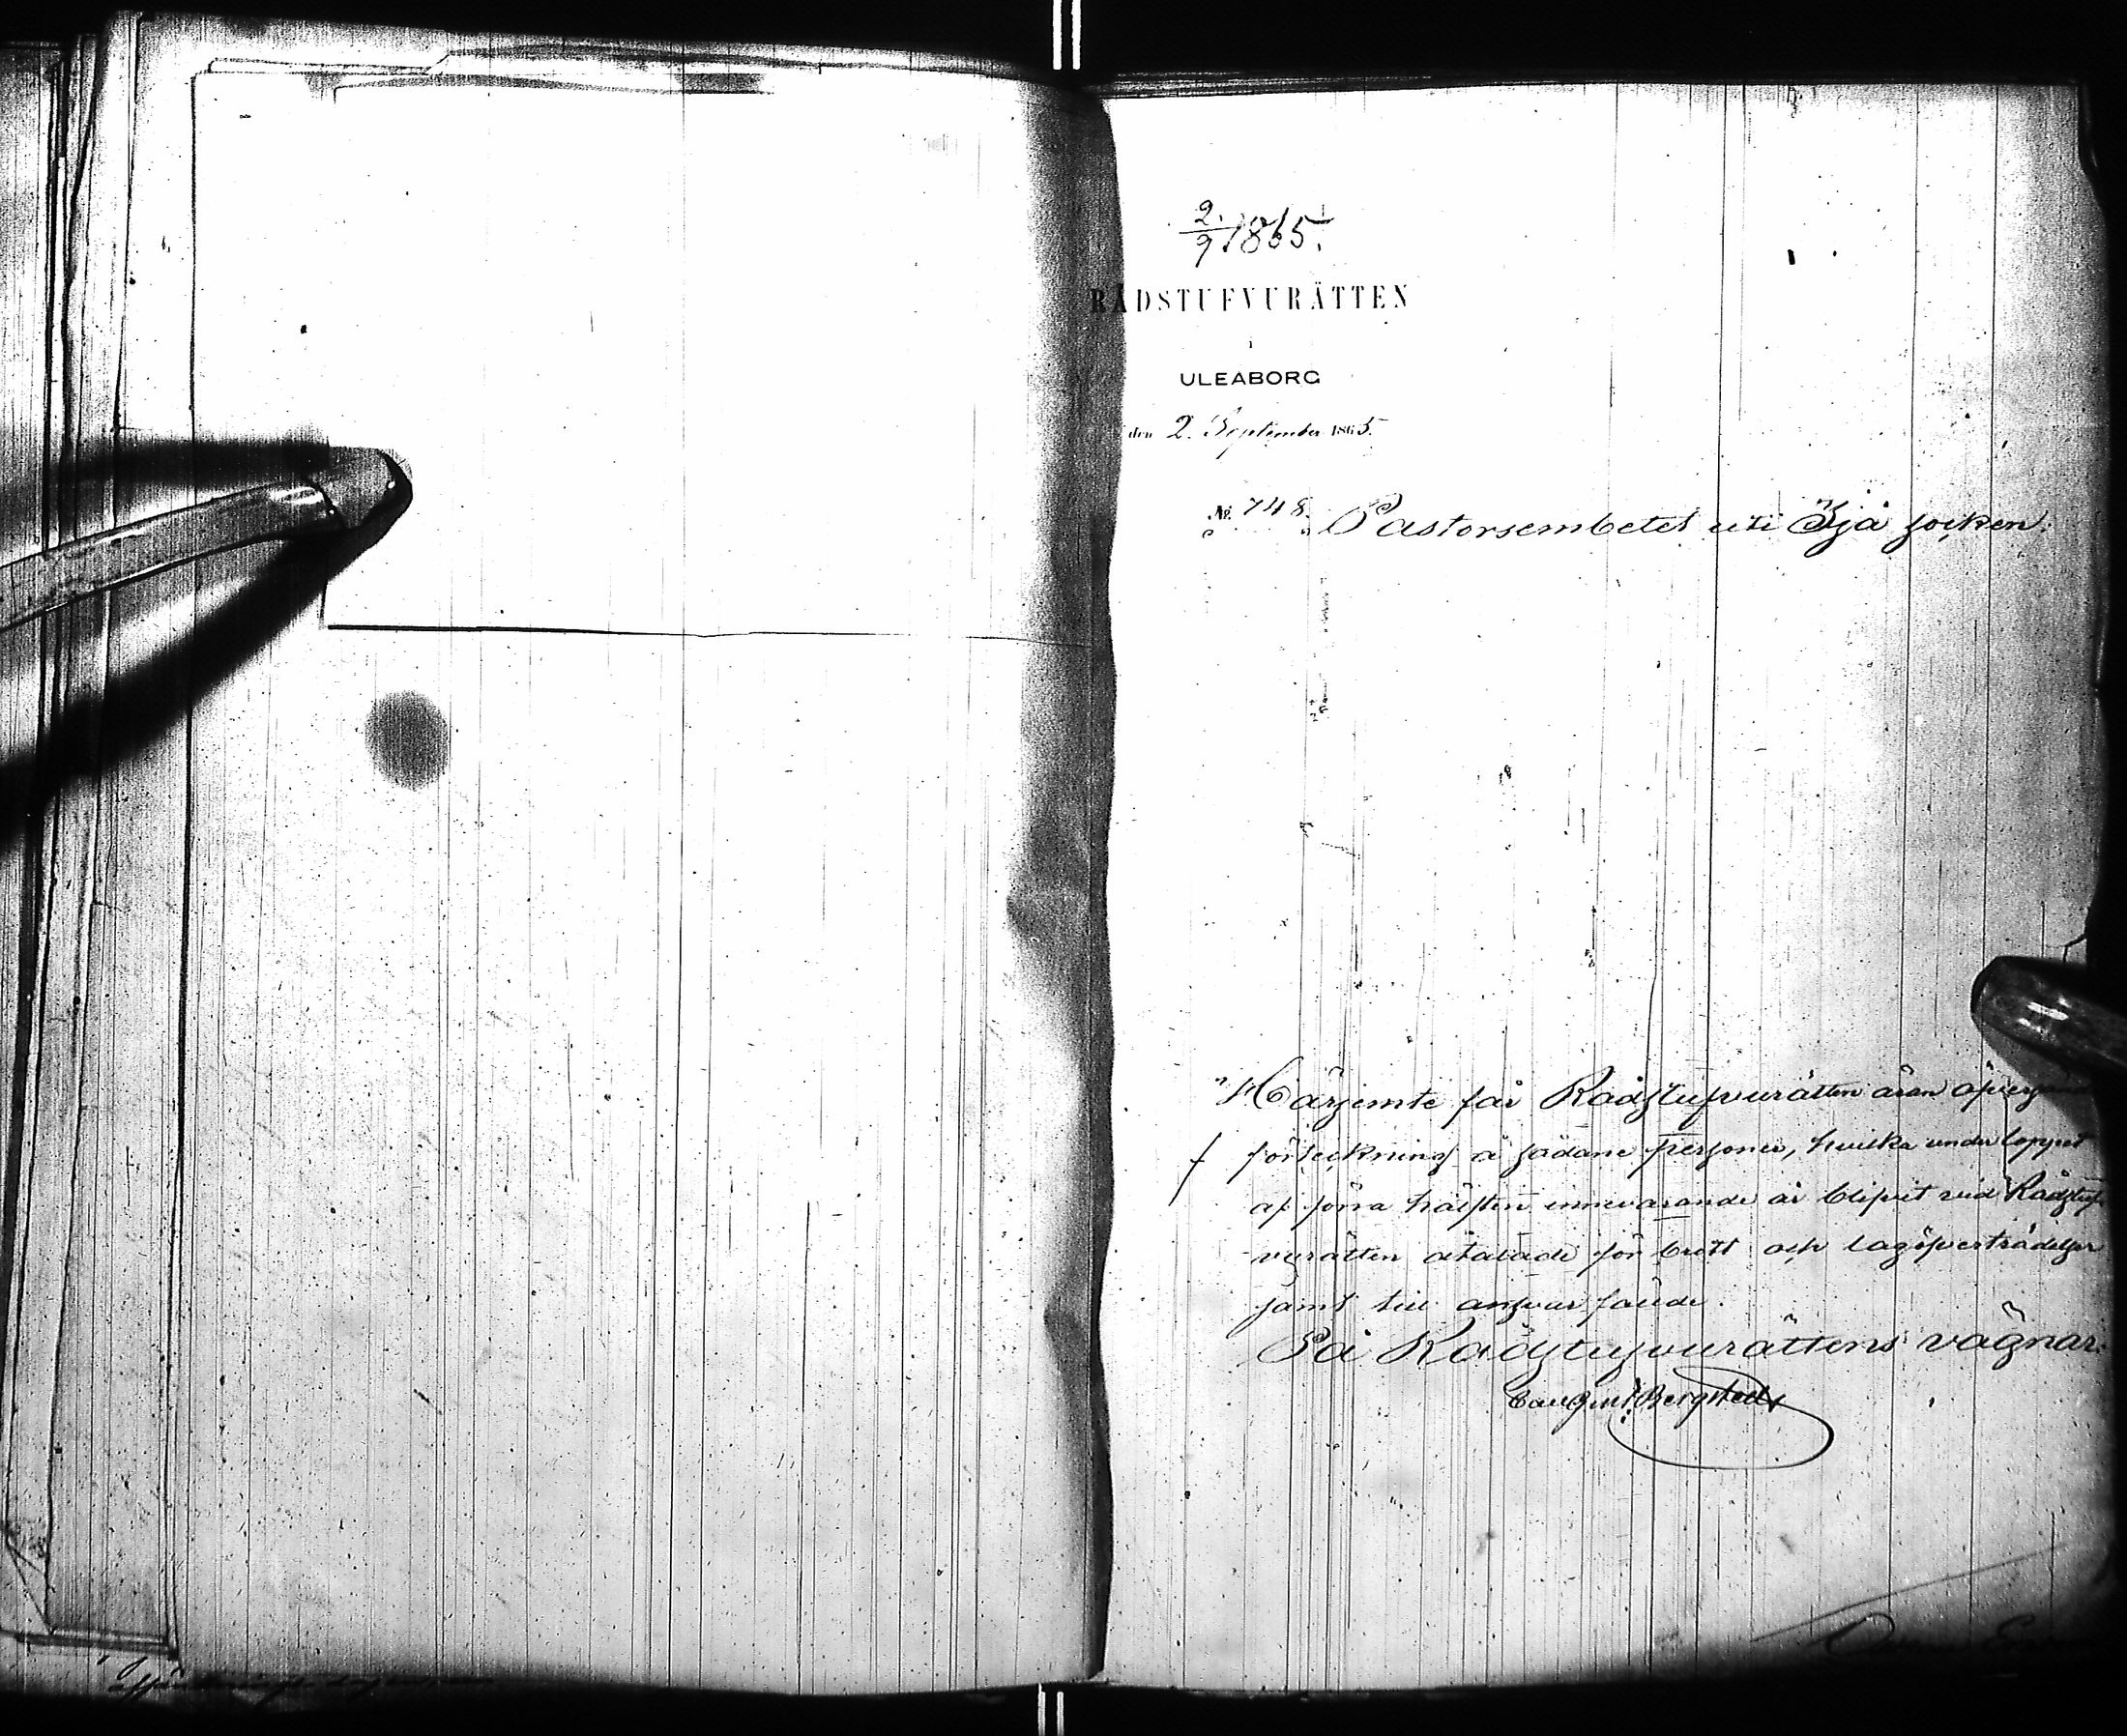 2./9 1865.
RÅDSTUFVURÄTTEN
i
ULEÅBORG
den 2. September 1865.
No. 748. Pastorsembetet uti Ijå socken.
Härjemte får Rådstufvurätten äran öfversända
förteckning å sådane personer, hvilka under loppet
af förra hälften innevarande år blifvit vid Rådstuf-
vurätten åtalade för brott och lagöfverträdelser
samt till ansvar fällde.
På Rådstufvurättens vägnar:
Bergstedt